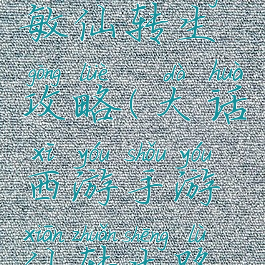 敏仙转生
gōng lüè dà huà
攻略(大话
xī yóu shǒu yóu
西游手游
xiān zhuǎn shēng lù